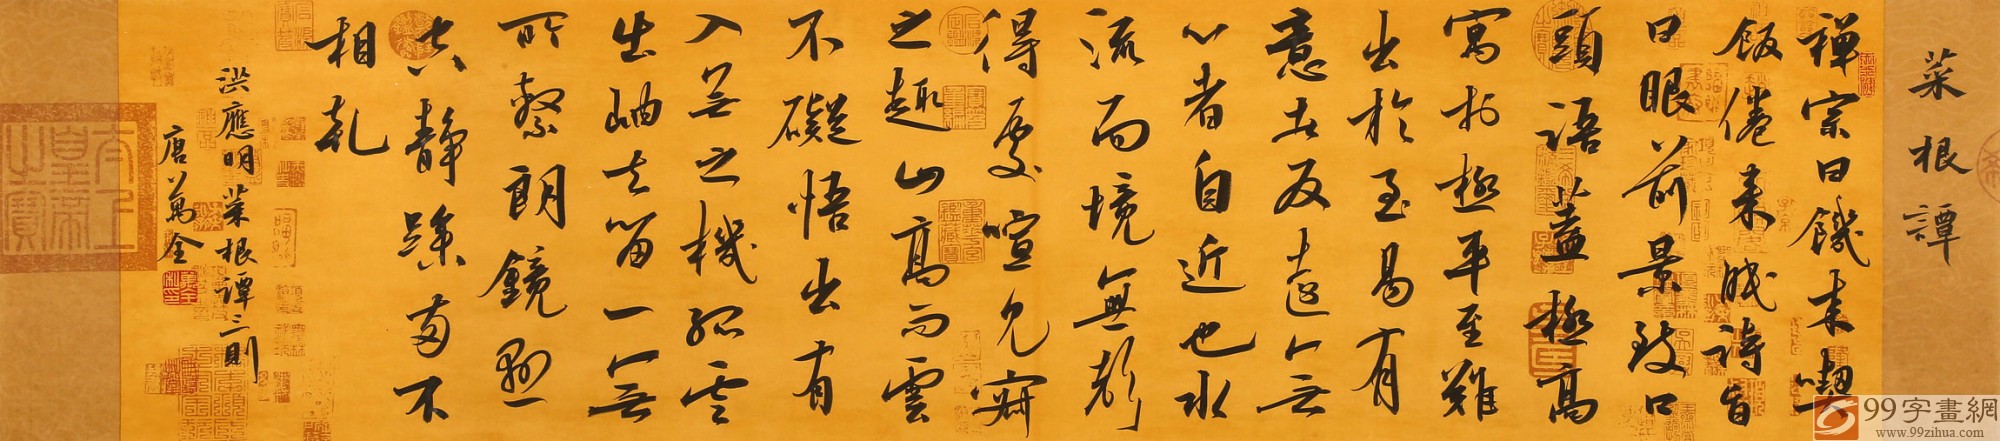 菜根譚
禪宗曰饑來喫
飯倦來眠詩旨
曰眼前景致口
頭語蓋極高
寓於極平至難
出於至易有
意者反遠無
心者自近也水
流而境無聲
得處喧見寂
之趣山高而雲
不礙悟出有
入無之機孤雲
出岫去留一無
所繫朗鏡懸
空靜躁兩不
相乾
洪應明菜根譚三則
唐萬全
太上
皇帝
之寶
99字畫網
www.99zihua.com